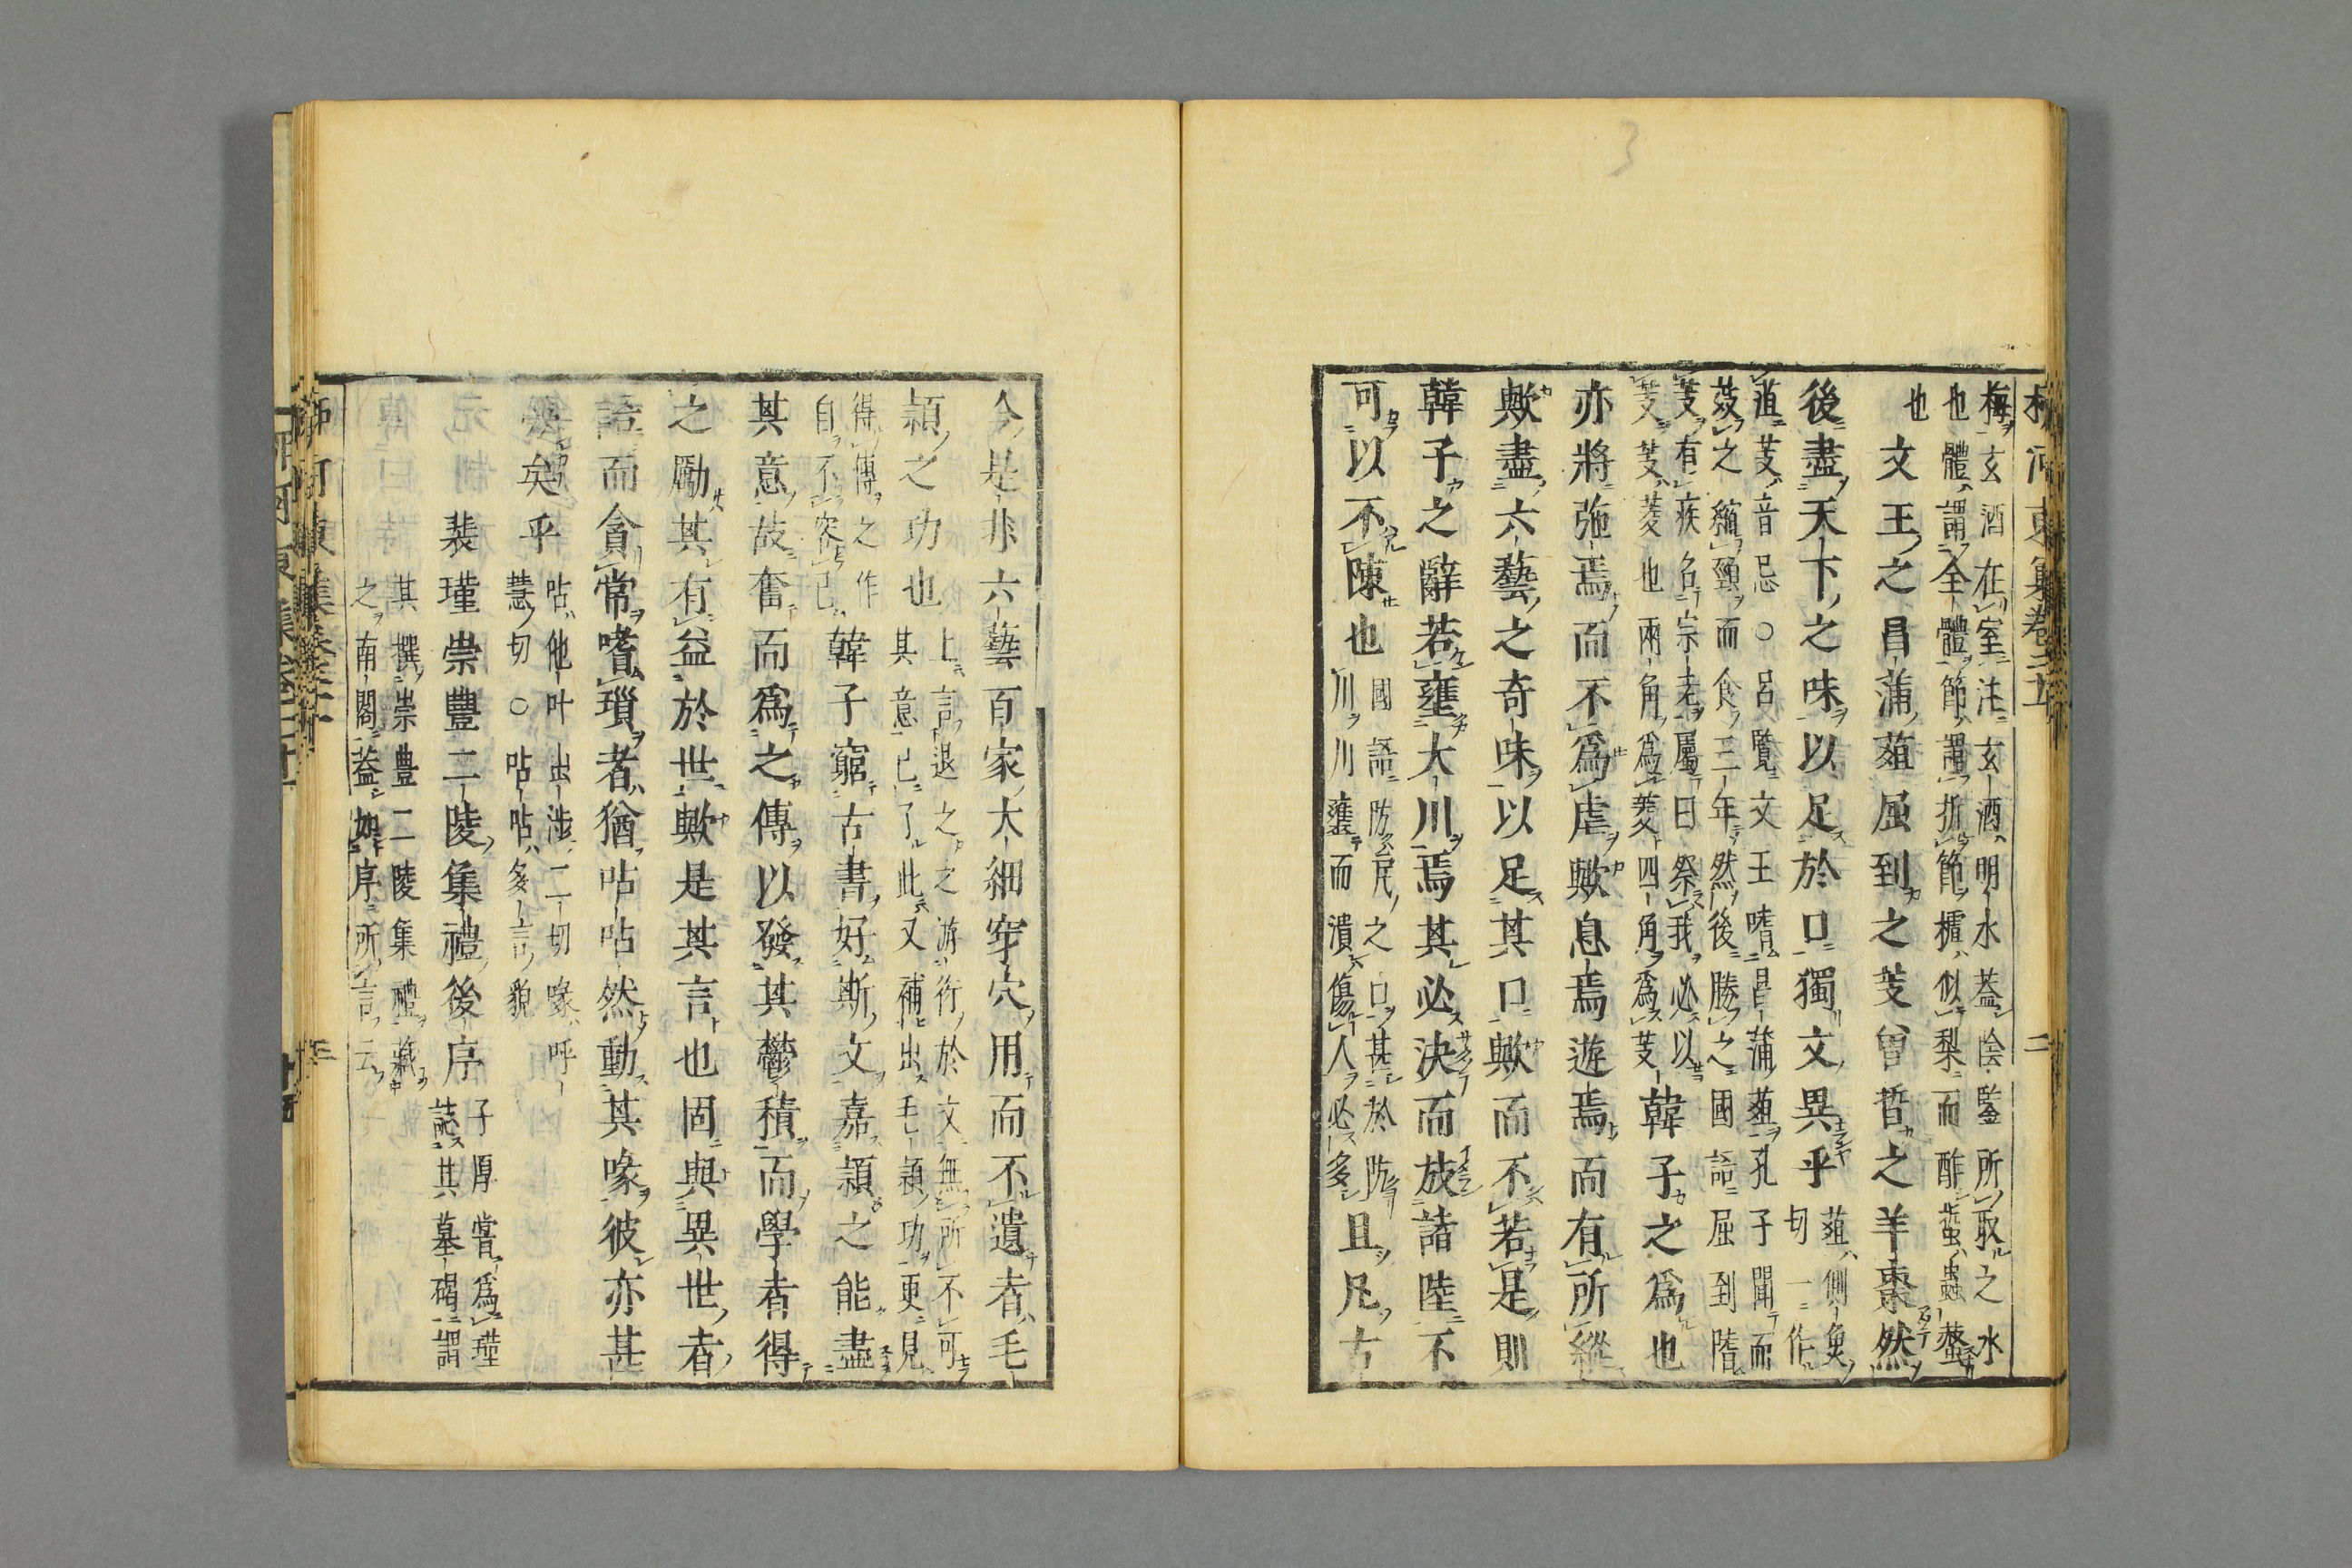 柳河東集卷二十一 二
梅玄酒在室注玄酒明水蓋陰鑒所取之水
也體謂全體節謂折節樝似梨而酢蜇蟲螫
也
文王之昌蒲葅屈到之芰曾晢之羊棗然
後盡天下之味以足於口獨文異乎
葅側魚
切一作
葅芰音忌○呂覽文王嗜昌蒲葅孔子聞而
菹之縮頞而食三年然後勝之國語屈到嗜
芰有疾名宗老屬曰祭我必以
芰芰菱也兩角爲菱四角爲芰
韓子之爲也
亦將弛焉而不爲虐歟息焉遊焉而有所縱
歟盡六藝之奇味以足其口歟而不若是則
韓子之辭若壅大川焉其必決而放諸陸不
可以不陳也
國語防民之口甚於防
川川壅而潰傷人必多
且凡古
今是非六藝百家大細穿穴用而不遺者毛
頴之功也
上言退之之游行於文無所不可
其意已了此又補出毛頴功更見
得傳之作
自不容已
韓子窮古書好斯文嘉頴之能盡
其意故奮而爲之傳以發其鬱積而學者得
之勵其有益於世歟是其言也固與異世者
語而貪常嗜瑣者猶呫呫然動其喙彼亦甚
勞矣乎
呫他叶出涉二切喙呼
慧切○呫呫多言貌
裴瑾崇豐二陵集禮後序
子厚嘗爲瑾
誌其墓碣謂
其撰崇豐二陵集禮藏
之南閣蓋如序所言云
柳河東集卷二十一 三